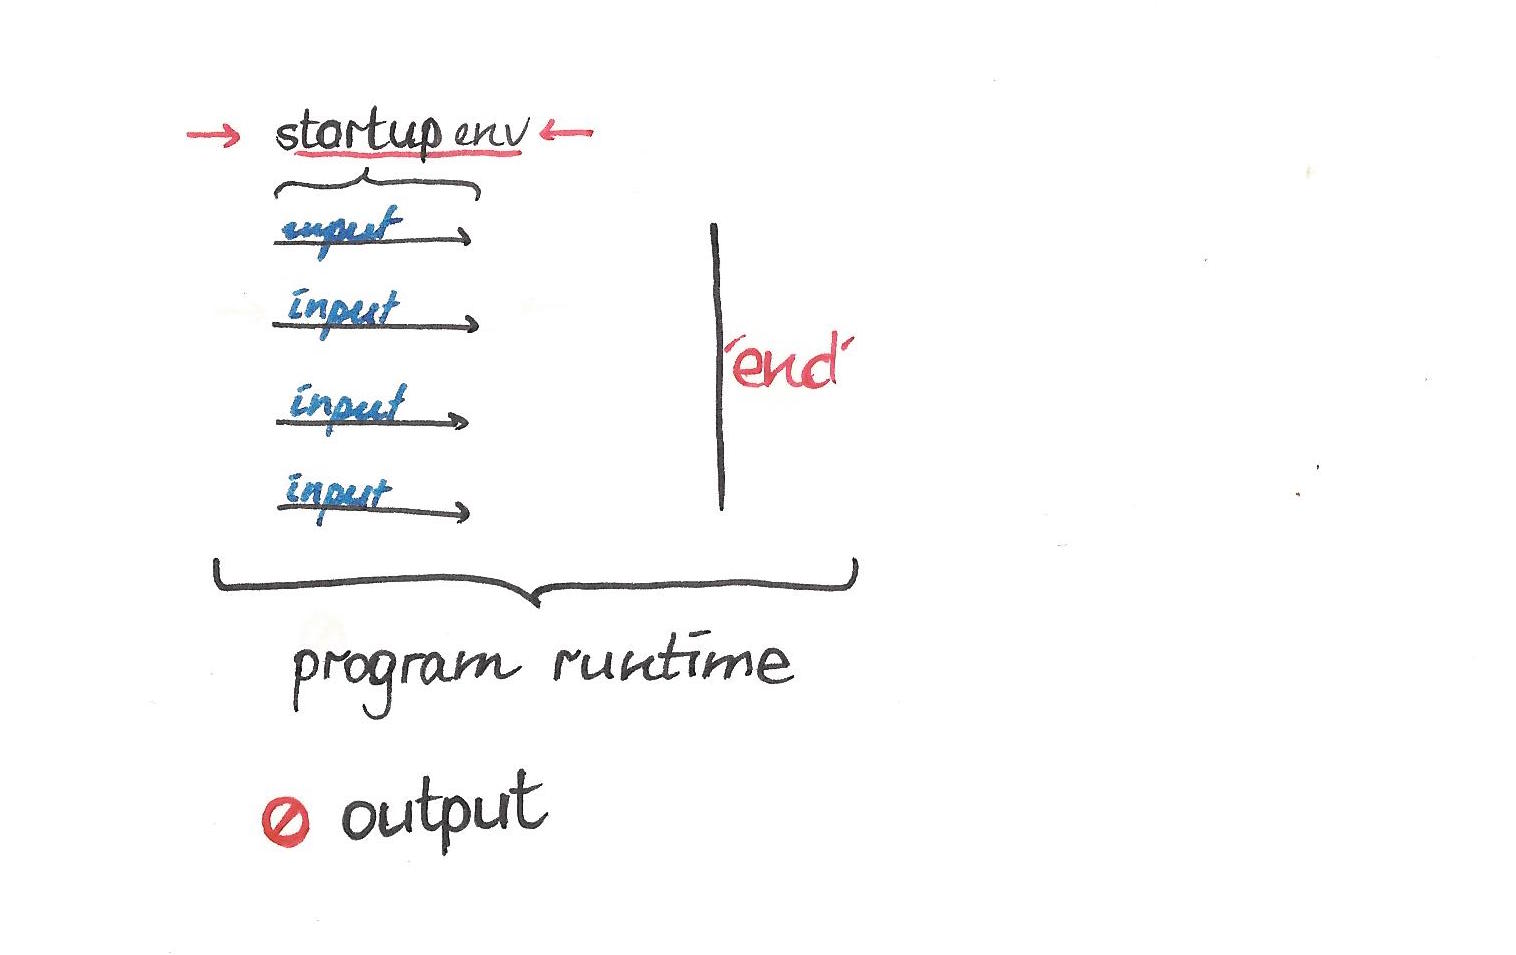 startup env
input
input
'end'
input
input
program runtime
output